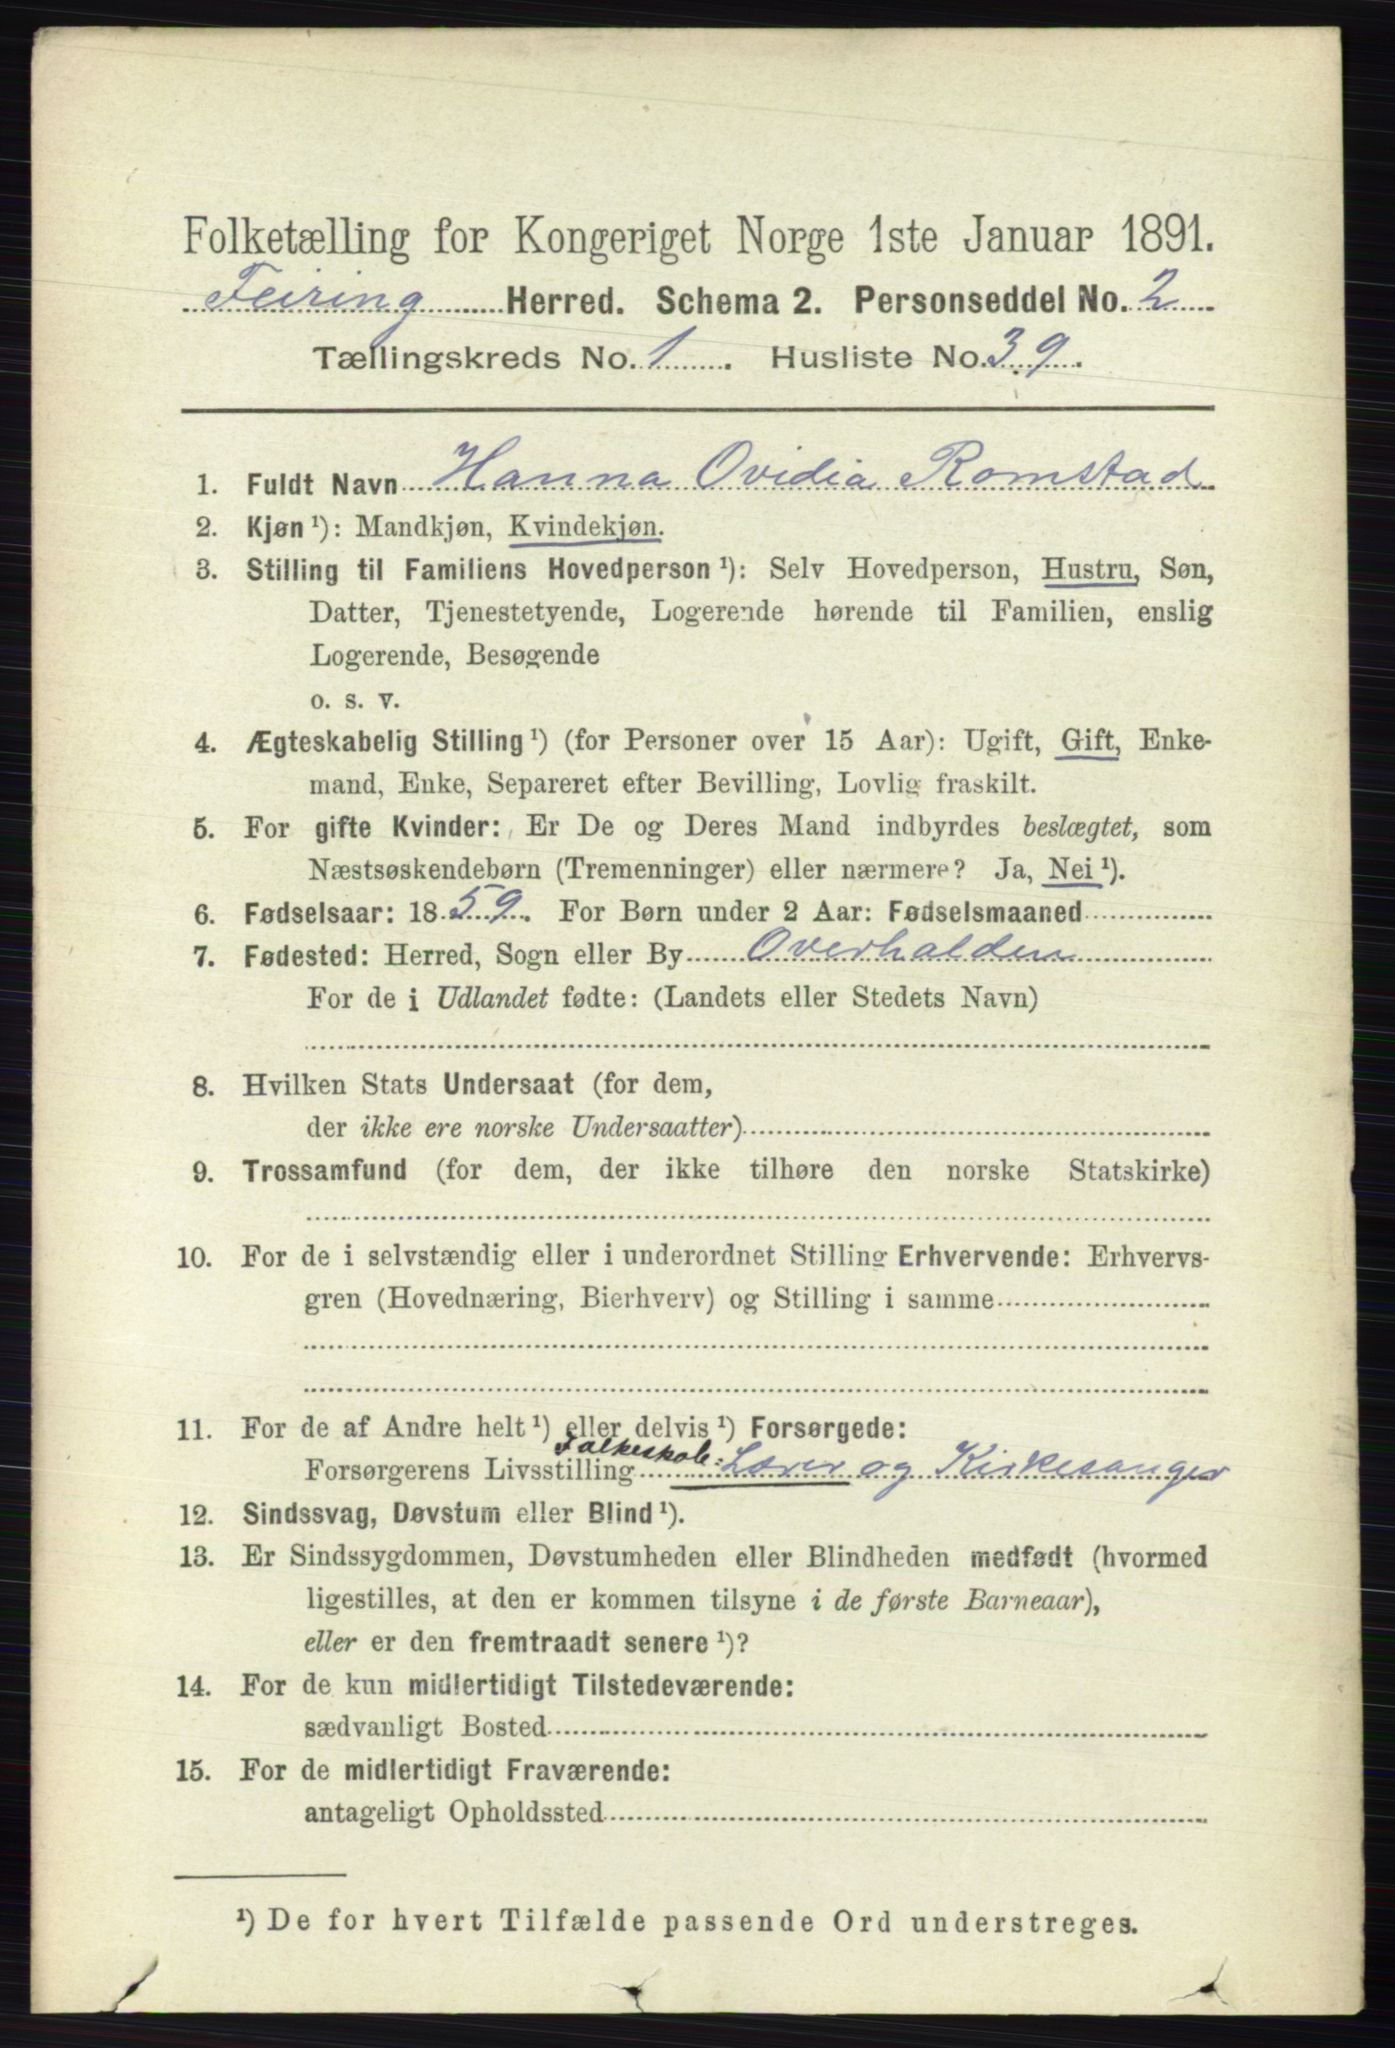 Folketælling for Kongeriget Norge 1ste Januar 1891.
Feiring Herred. Schema 2. Personseddel No. 2
Tællingskreds No. 1. Husliste No. 39.
1. Fuldt Navn Hanna Ovidia Romstad
2. Kjøn ¹): Mandkjøn, Kvindekjøn.
3. Stilling til Familiens Hovedperson ¹): Selv Hovedperson, Hustru, Søn,
Datter, Tjenestetyende, Logerende hørende til Familien, enslig
Logerende, Besøgende
o. s. v.
4. Ægteskabelig Stilling ¹) (for Personer over 15 Aar): Ugift, Gift, Enke-
mand, Enke, Separeret efter Bevilling, Lovlig fraskilt.
5. For gifte Kvinder: Er De og Deres Mand indbyrdes beslægtet, som
Næstsøskendebørn (Tremenninger) eller nærmere? Ja, Nei ¹).
6. Fødselsaar: 1859. For Børn under 2 Aar: Fødselsmaaned
7. Fødested: Herred, Sogn eller By Overhalden
For de i Udlandet fødte: (Landets eller Stedets Navn)
8. Hvilken Stats Undersaat (for dem,
der ikke ere norske Undersaatter)
9. Trossamfund (for dem, der ikke tilhøre den norske Statskirke)
10. For de i selvstændig eller i underordnet Stilling Erhvervende: Erhvervs-
gren (Hovednæring, Bierhverv) og Stilling i samme
11. For de af Andre helt ¹) eller delvis ¹) Forsørgede:
Forsørgerens Livsstilling Folkeskole: Lærer og Kirkesanger
12. Sindssvag, Døvstum eller Blind ¹).
13. Er Sindssygdommen, Døvstumheden eller Blindheden medfødt (hvormed
ligestilles, at den er kommen tilsyne i de første Barneaar),
eller er den fremtraadt senere ¹)?
14. For de kun midlertidigt Tilstedeværende:
sædvanligt Bosted
15. For de midlertidigt Fraværende:
antageligt Opholdssted
¹) De for hvert Tilfælde passende Ord understreges.